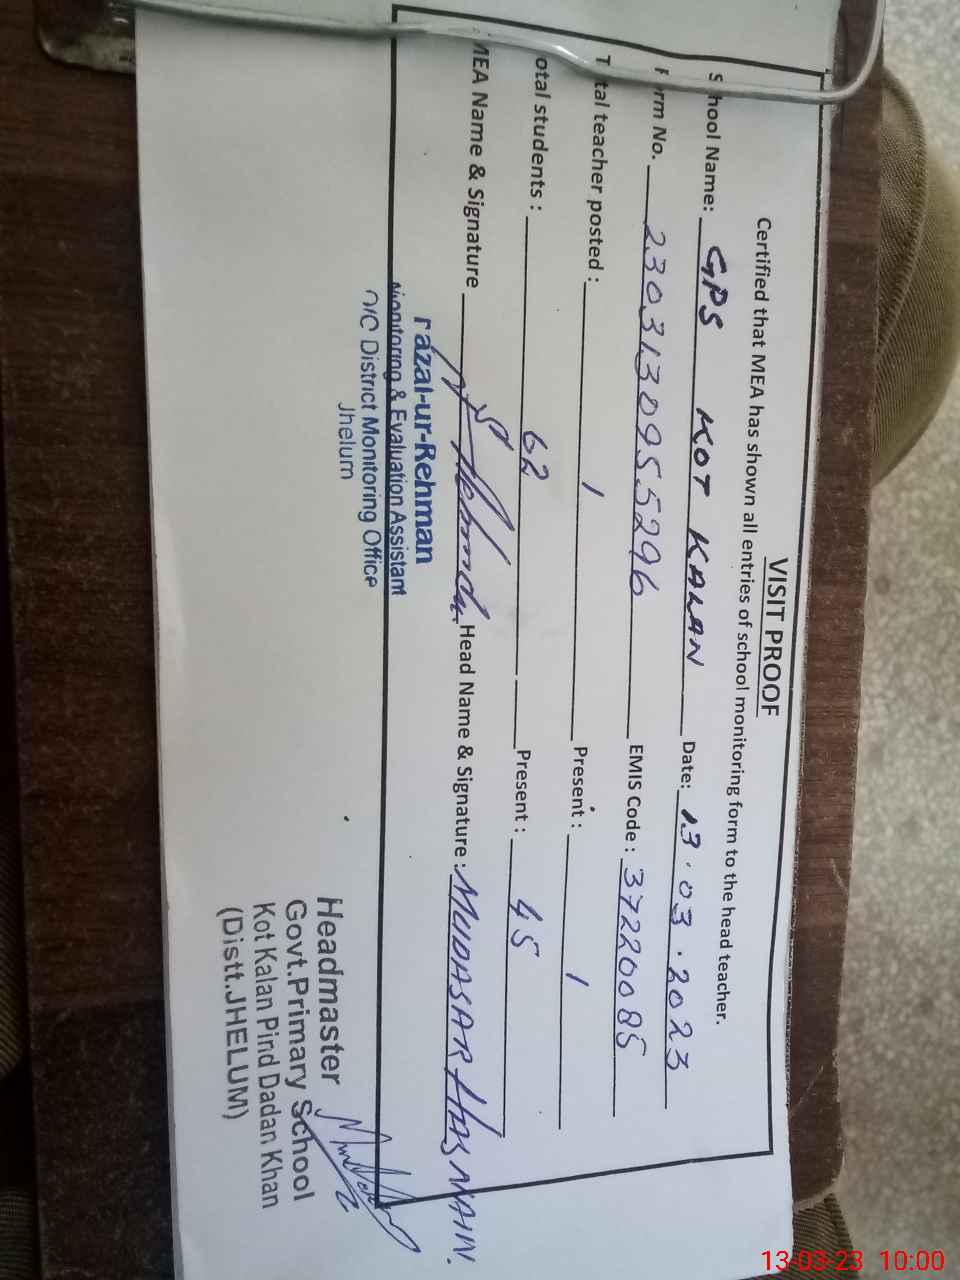 VISIT PROOF
Certified that MEA has shown all entries of school monitoring form to the head teacher.
School Name: GPS KOT KALAN Date: 13.03.2023
Form No. 2303130955296 EMIS Code: 37220085
Total teacher posted: 1 Present: 1
Total students: 62 Present: 45
MEA Name & Signature Head Name & Signature: MUDASAR HASNAIN.
Fazal-ur-Rehman
Monitoring & Evaluation Assistant
O/C District Monitoring Office
Jhelum
Headmaster
Govt.Primary School
Kot Kalan Pind Dadan Khan
(Distt.JHELUM)
13-03-23 10:00